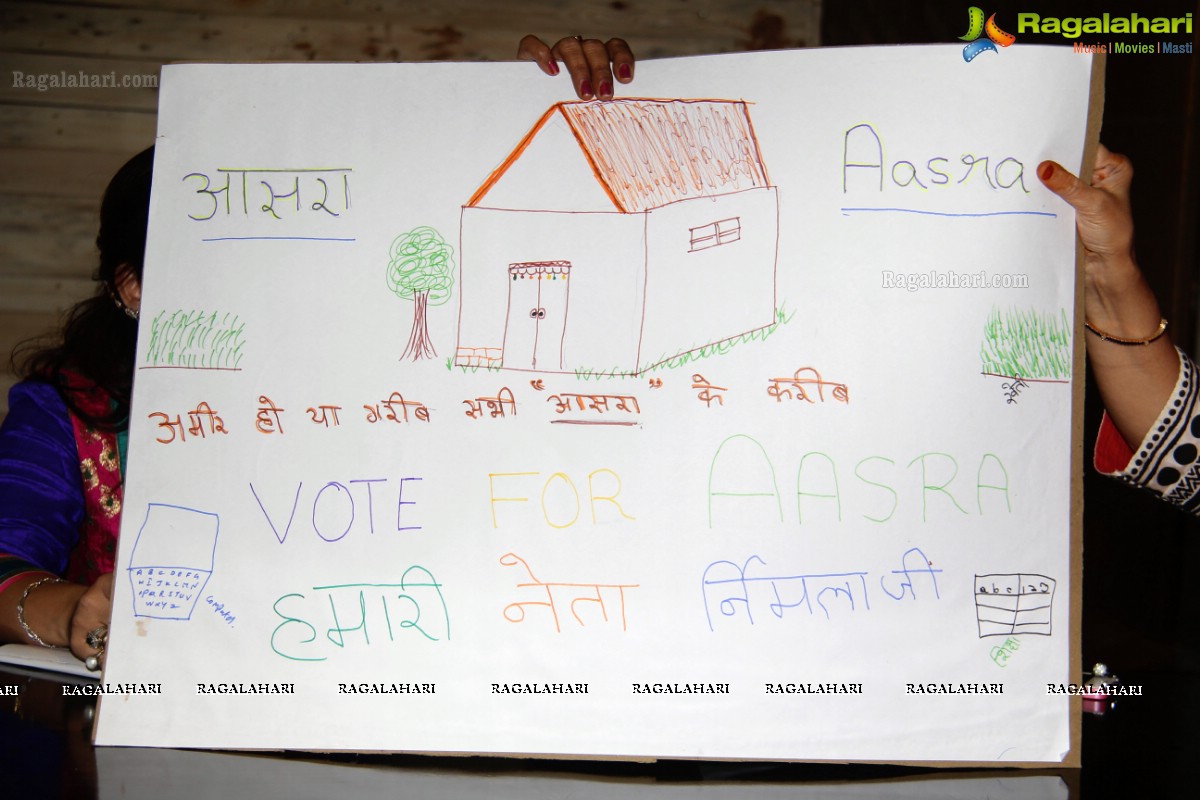 Ragalahari
Music|Movies|Masti
Ragalahari.com
आसरा
Aasra
Ragalahari.com
खेती
अमीर हो या गरीब सभी "आसरा" के करीब
VOTE FOR AASRA
A B C D E F G
computer
हमारी नेता र्निमला जी
abc 123
शिक्षा
RAGALAHARI RAGALAHARI RAGALAHARI RAGALAHARI RAGALAHARI RAGALAHARI RAGALAHARI RAGALAHARI